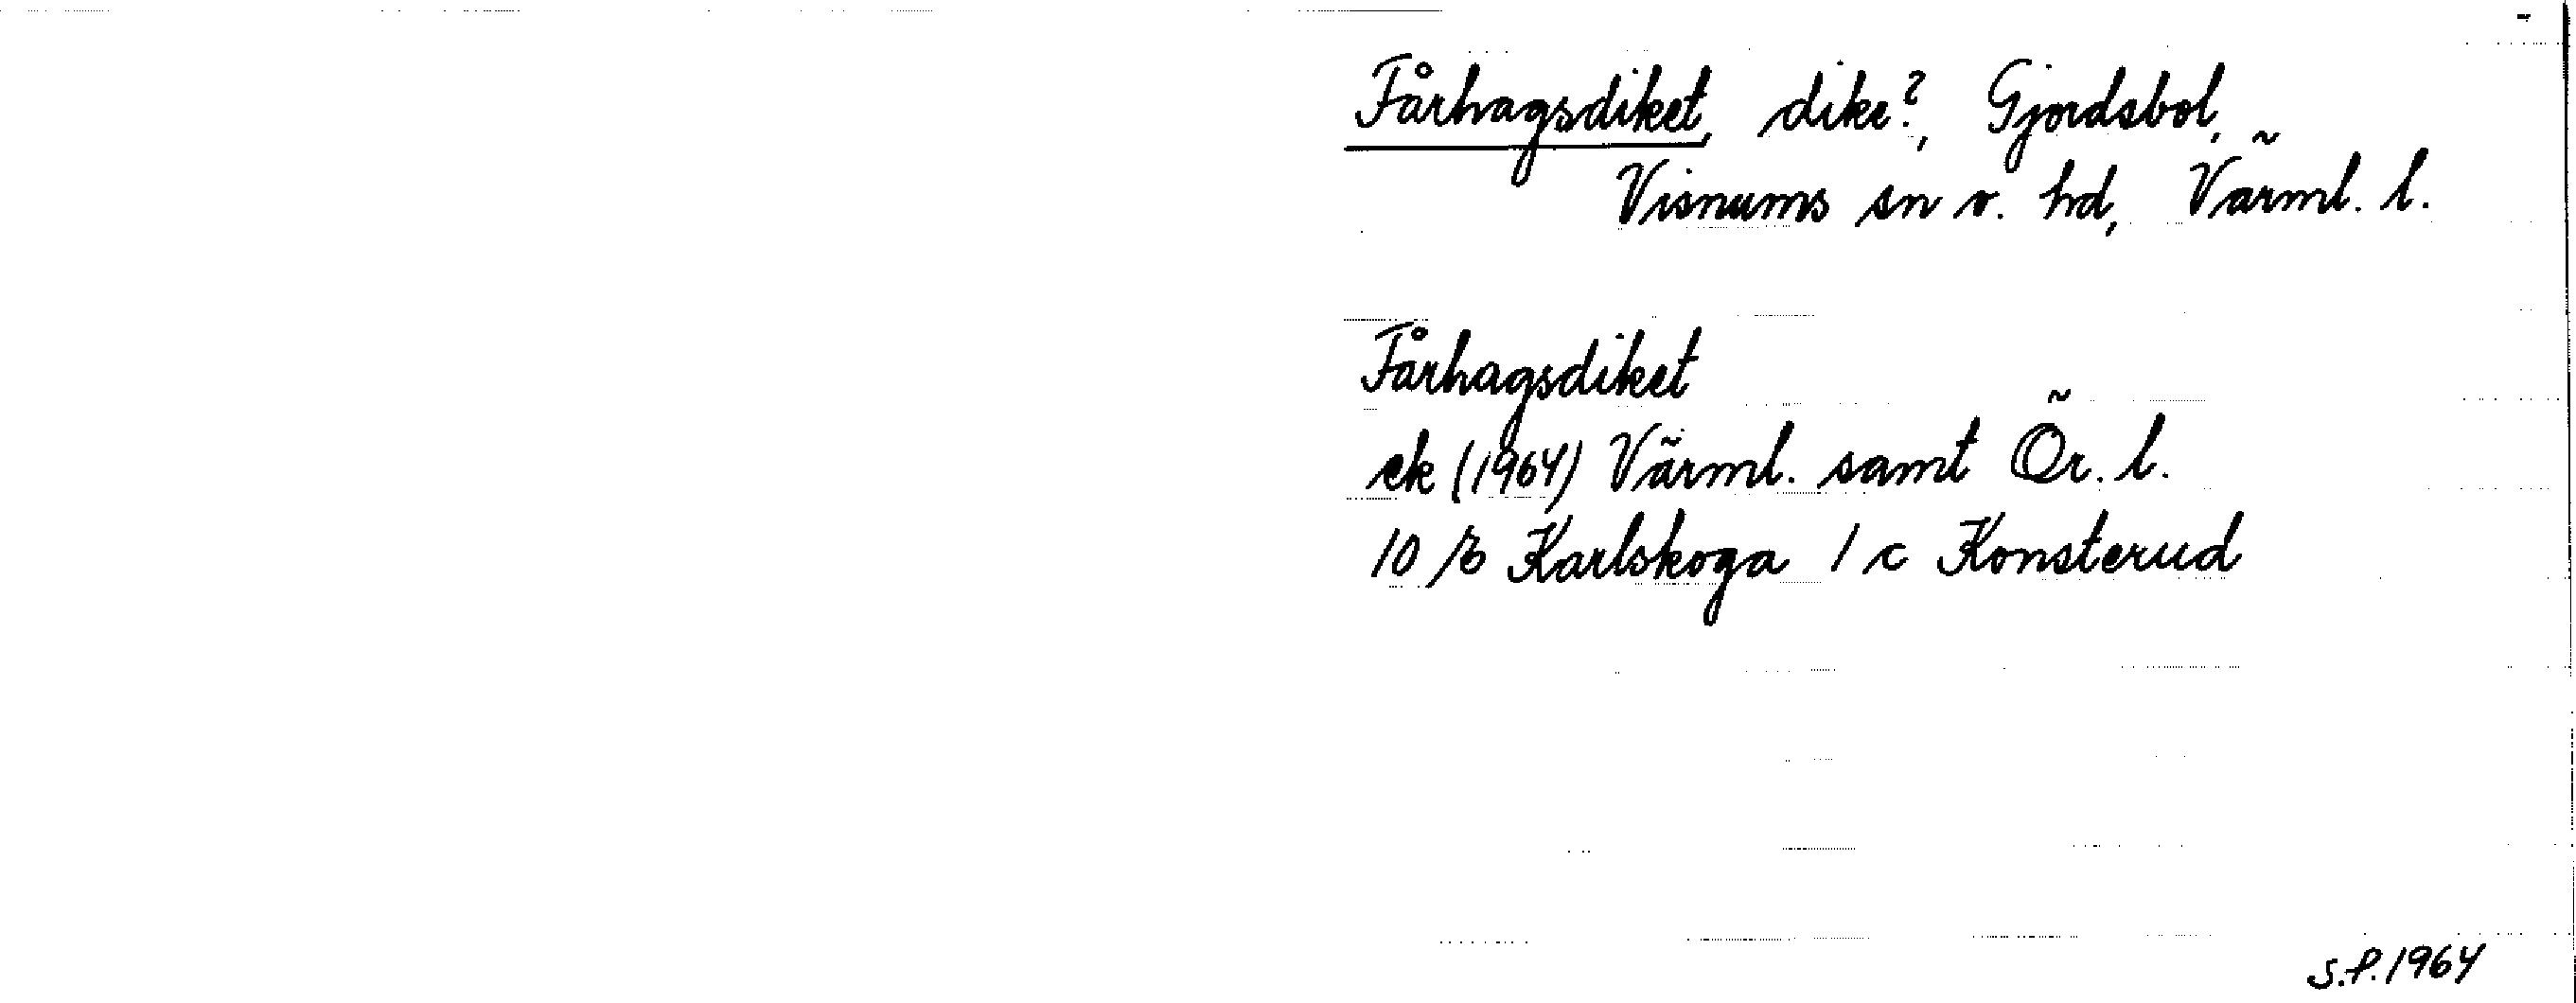 Fårhagsdiket, dike?, Gjordsbol,
Visnums sn o. hd, Värml. l.
Fårhagsdiket
ek (1964) Värml. samt Ör. l.
10 E Karlskoga 1 c Konsterud
S.P. 1964